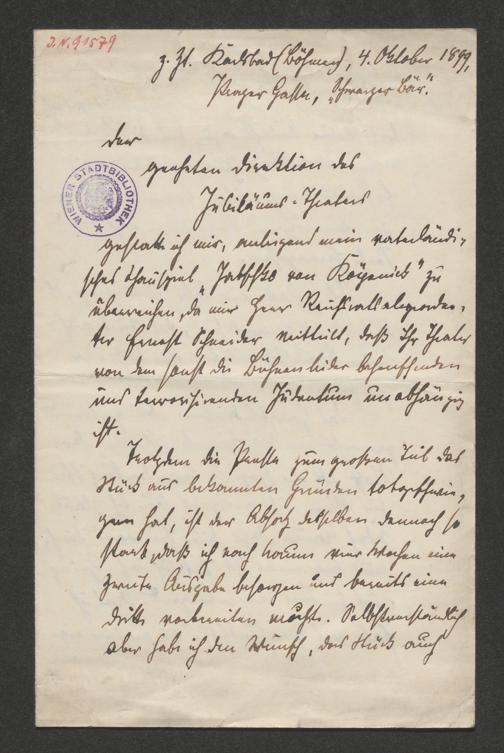 J.N. 91579
z. Zt. Karlsbad (Böhmen), 4. Oktober 1899,
Prager Gasse, „Schwarzer Bär“.
Der
geehrten Direktion des
Jubiläums-Theaters
WIENER STADTBIBLIOTHEK
gestatte ich mir, anliegend mein vaterländi-
sches Schauspiel „Jatschko von Köpenick“ zu
überreichen, da mir Herr Reichsratsabgeordne-
ter Ernest Schneider mitteilt, daß Ihr Theater
von dem sonst die Bühnen leider beherrschenden
und terrorisirenden Judentum unabhängig
ist.
Trotzdem die Presse zum großen Teil das
Stück aus bekannten Gründen totgeschwie-
gen hat, ist der Absatz desselben dennoch so
stark, daß ich nach kaum vier Wochen eine
zweite Ausgabe besorgen und bereits eine
dritte vorbereiten mußte. Selbstverständlich
aber habe ich den Wunsch, das Stück auch